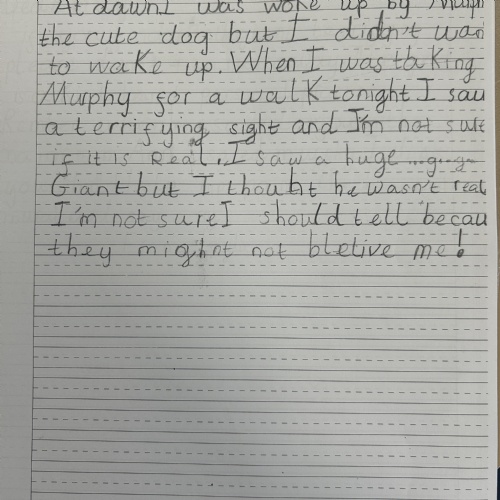 At dawn I was woke up by Murph
the cute dog but I didn't wan
to wake up. When I was taking
Murphy for a walk tonight I saw
a terrifying sight and I'm not sure
if it is Real. I saw a huge
Giant but I thouht he wasn't real
I'm not sure I should tell becau
they might not bleive me!